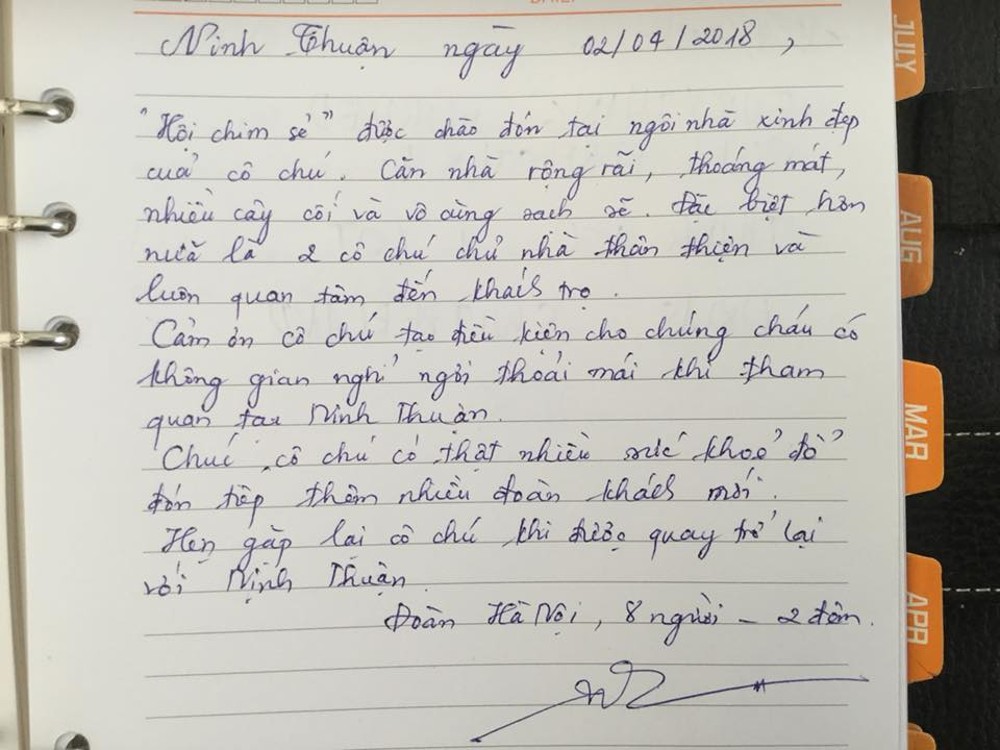 Ninh Thuận ngày 02/04/2018,
"Hội chim sẻ" được chào đón tại ngôi nhà xinh đẹp
của cô chú. Căn nhà rộng rãi, thoáng mát,
nhiều cây cối và vô cùng sạch sẽ. Đặc biệt hơn
nữa là 2 cô chú chủ nhà thân thiện và
luôn quan tâm đến khách trọ.
Cảm ơn cô chú tạo điều kiện cho chúng cháu có
không gian nghỉ ngơi thoải mái khi tham
quan tại Ninh Thuận.
Chúc cô chú có thật nhiều sức khoẻ để
đón tiếp thêm nhiều đoàn khách mới.
Hẹn gặp lại cô chú khi được quay trở lại
với Ninh Thuận.
Đoàn Hà Nội, 8 người - 2 đêm.
JULY
AUG
MAR
APR